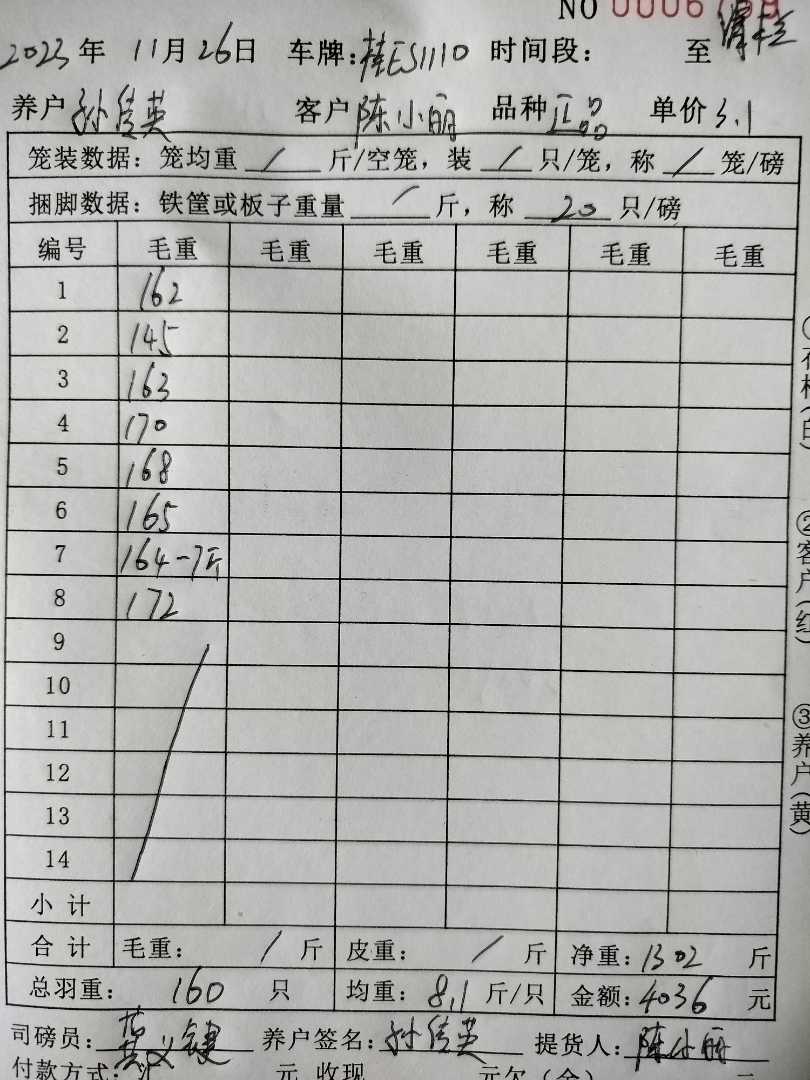 NO 0006759
2023年 11月26日 车牌:桂ES1110 时间段: 至
养户 孙俊英 客户 陈小丽 品种 正品 单价 3.1
笼装数据: 笼均重 / 斤/空笼, 装 / 只/笼, 称 / 笼/磅
捆脚数据: 铁筐或板子重量 / 斤, 称 20 只/磅
编号 毛重 毛重 毛重 毛重 毛重 毛重
1 162
2 145
3 163
4 170
5 168
6 165
7 164-7斤
8 172
9
10
11
12
13
14
小 计
合 计 毛重: / 斤 皮重: / 斤 净重: 1302 斤
总羽重: 160 只 均重: 8.1 斤/只 金额: 4036 元
司磅员: 养户签名: 孙俊英 提货人: 陈小丽
付款方式: 元 收现 元欠(余) 元
②客户(红)
③养户(黄)